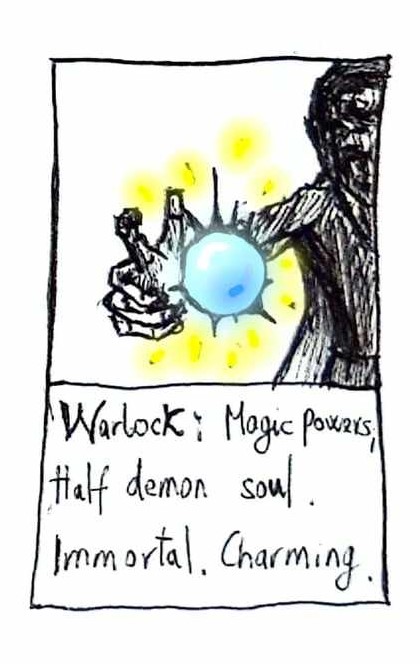 Warlock: Magic Powers,
Half demon soul.
Immortal. Charming.